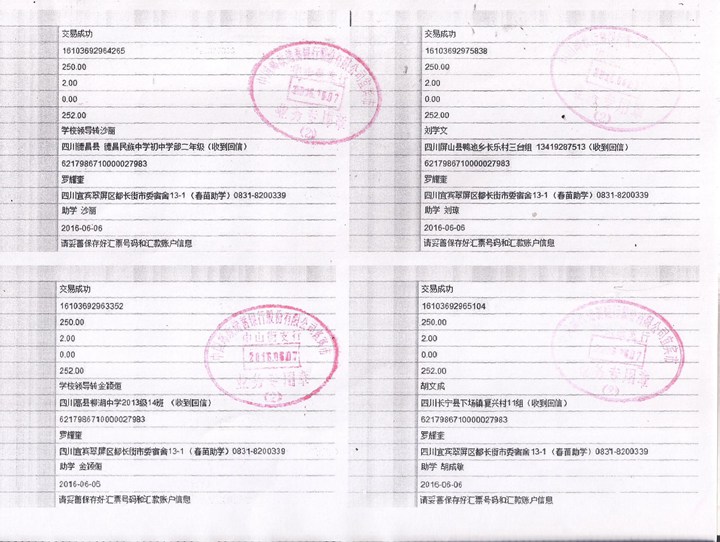 交易成功
16103692964265
250.00
2.00
0.00
252.00
学校领导转沙丽
四川德昌县 德昌民族中学初中学部二年级（收到回信）
6217986710000027983
罗耀奎
四川宜宾翠屏区都长街市委宿舍13-1（春苗助学）0831-8200339
助学 沙丽
2016-06-06
请妥善保存好汇票号码和汇款账户信息
2016.06.07
业务专用章
(2)
交易成功
16103692975838
250.00
2.00
0.00
252.00
刘学文
四川屏山县鸭池乡长乐村三台组 13419287513（收到回信）
6217986710000027983
罗耀奎
四川宜宾翠屏区都长街市委宿舍13-1（春苗助学）0831-8200339
助学 刘琼
2016-06-06
请妥善保存好汇票号码和汇款账户信息
(2)
交易成功
16103692963352
250.00
2.00
0.00
252.00
学校领导转金颖偲
四川高县柳湖中学2013级14班 （收到回信）
6217986710000027983
罗耀奎
四川宜宾翠屏区都长街市委宿舍13-1（春苗助学）0831-8200339
助学 金颖偲
2016-06-06
请妥善保存好汇票号码和汇款账户信息
中山街支行
2016.06.07
业务专用章
(2)
交易成功
16103692965104
250.00
2.00
0.00
252.00
胡文成
四川长宁县下场镇复兴村11组（收到回信）
6217986710000027983
罗耀奎
四川宜宾翠屏区都长街市委宿舍13-1（春苗助学）0831-8200339
助学 胡成敏
2016-06-06
请妥善保存好汇票号码和汇款账户信息
专用章
(2)